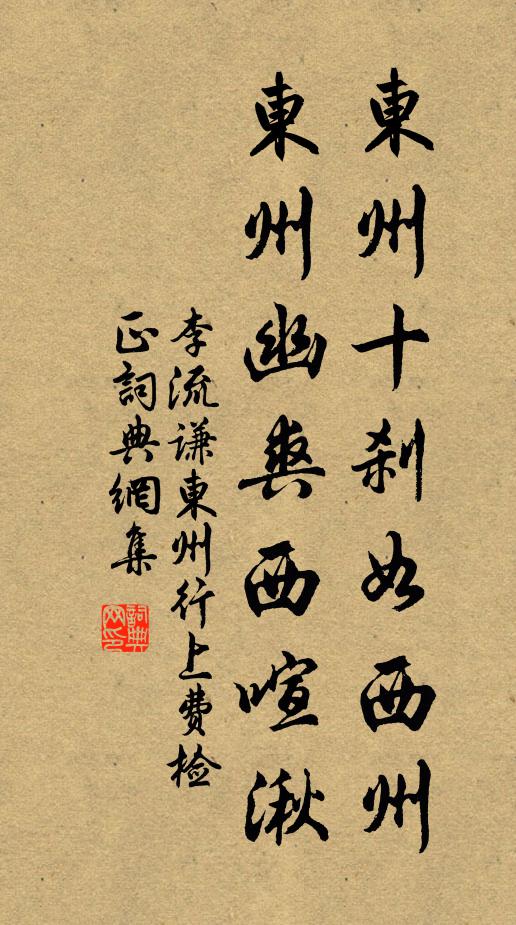 東州十刹如西州
東州幽爽西喧湫
李流谦東州行上費檢
正詞典網集
詞典網印